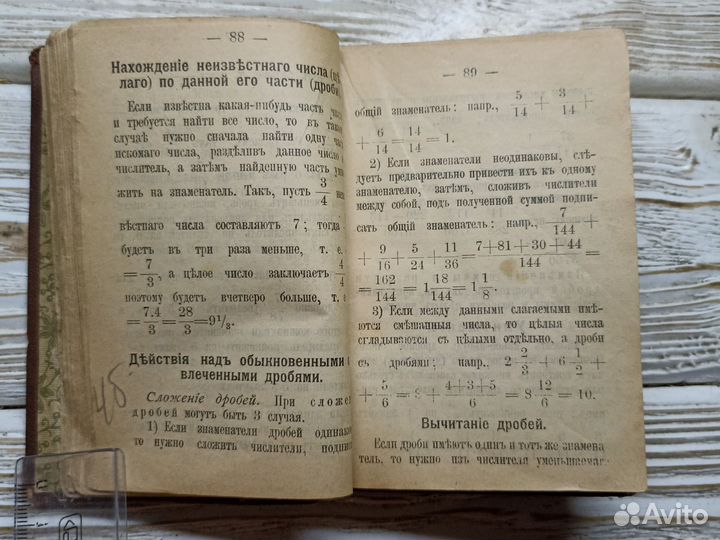 — 88 —
Нахожденіе неизвѣстнаго числа (цѣ
лаго) по данной его части (дроби
Если извѣстна какая-нибудь часть
и требуется найти все число, то въ
случаѣ нужно сначала найти одну
искомаго числа, раздѣливъ данное число
числитель, а затѣмъ найденную часть
жить на знаменатель. Такъ, пусть 3/4
вѣстнаго числа составляютъ 7; тогда
будетъ въ три раза меньше, т. е.
= 7/3, а цѣлое число заключаетъ 4/4
поэтому будетъ вчетверо больше, т. е
= 7.4/3 = 28/3 = 9 1/3.
Дѣйствія надъ обыкновенными
влеченными дробями.
Сложеніе дробей. При сложе
дробей могутъ быть 3 случая.
1) Если знаменатели дробей одинак
то нужно сложить числителя, подпи
46
— 89 —
общій знаменатель: напр., 5/14 + 3/14 +
+ 6/14 = 14/14 = 1.
2) Если знаменатели неодинаковы, слѣ-
дуетъ предварительно привести ихъ къ одному
знаменателю, затѣмъ, сложивъ числители
между собой, подъ полученной суммой подпи-
сать общій знаменатель: напр., 7/144 +
+ 9/16 + 5/24 + 11/36 = 7+81+30+44/144 =
= 162/144 = 1 18/144 = 1 1/8.
3) Если между данными слагаемыми имѣ-
ются смѣшанныя числа, то цѣлыя числа
складываются съ цѣлыхъ отдѣльно, а дроби
съ дробями; напр., 2 2/3 + 6 1/2 +
+ 5/6 = 8 + 4+3+5/6 = 8 12/6 = 10.
Вычитаніе дробей.
Если дроби имѣютъ одинъ и тотъ же знамена
тель, то нужно изъ числителя уменьшаемаг
Avito